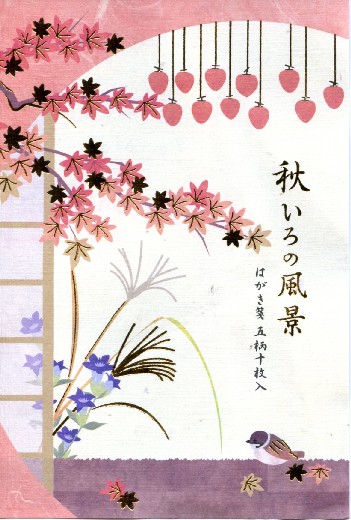 秋いろの風景
はがき箋 五柄十枚入